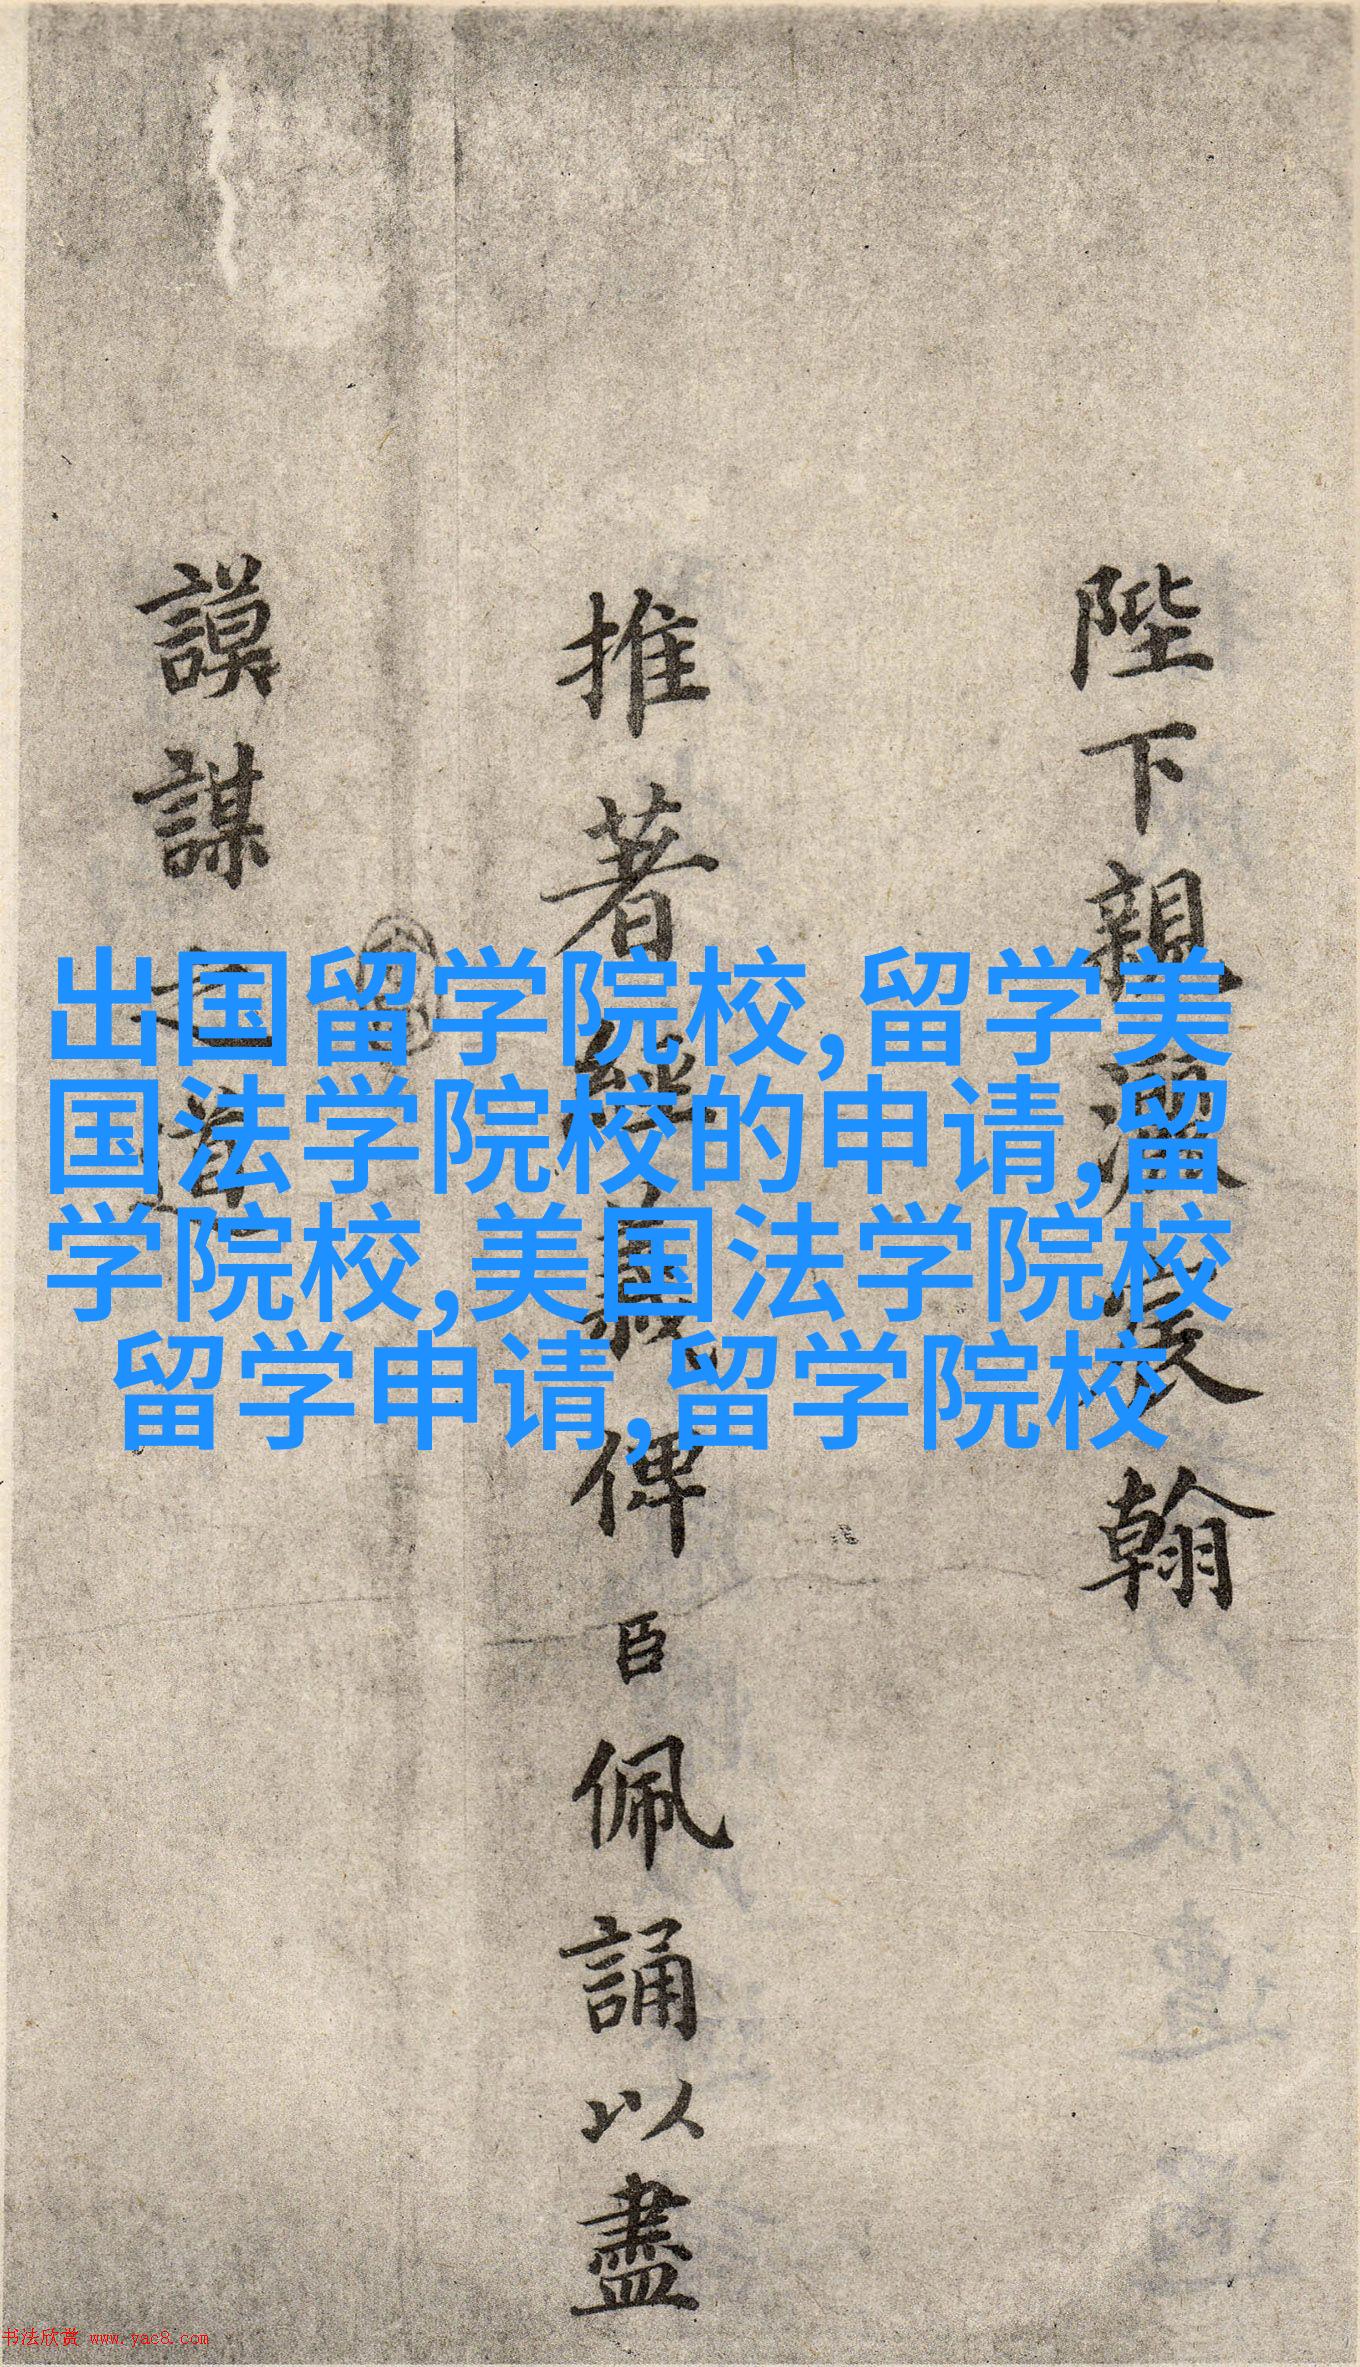 陛下親灑宸翰
推著經義俾臣佩誦以盡
謨謀之道
出国留学院校,留学美
国法学院校的申请,留
学院校,美国法学院校
留学申请,留学院校
书法欣赏 www.yac8.com